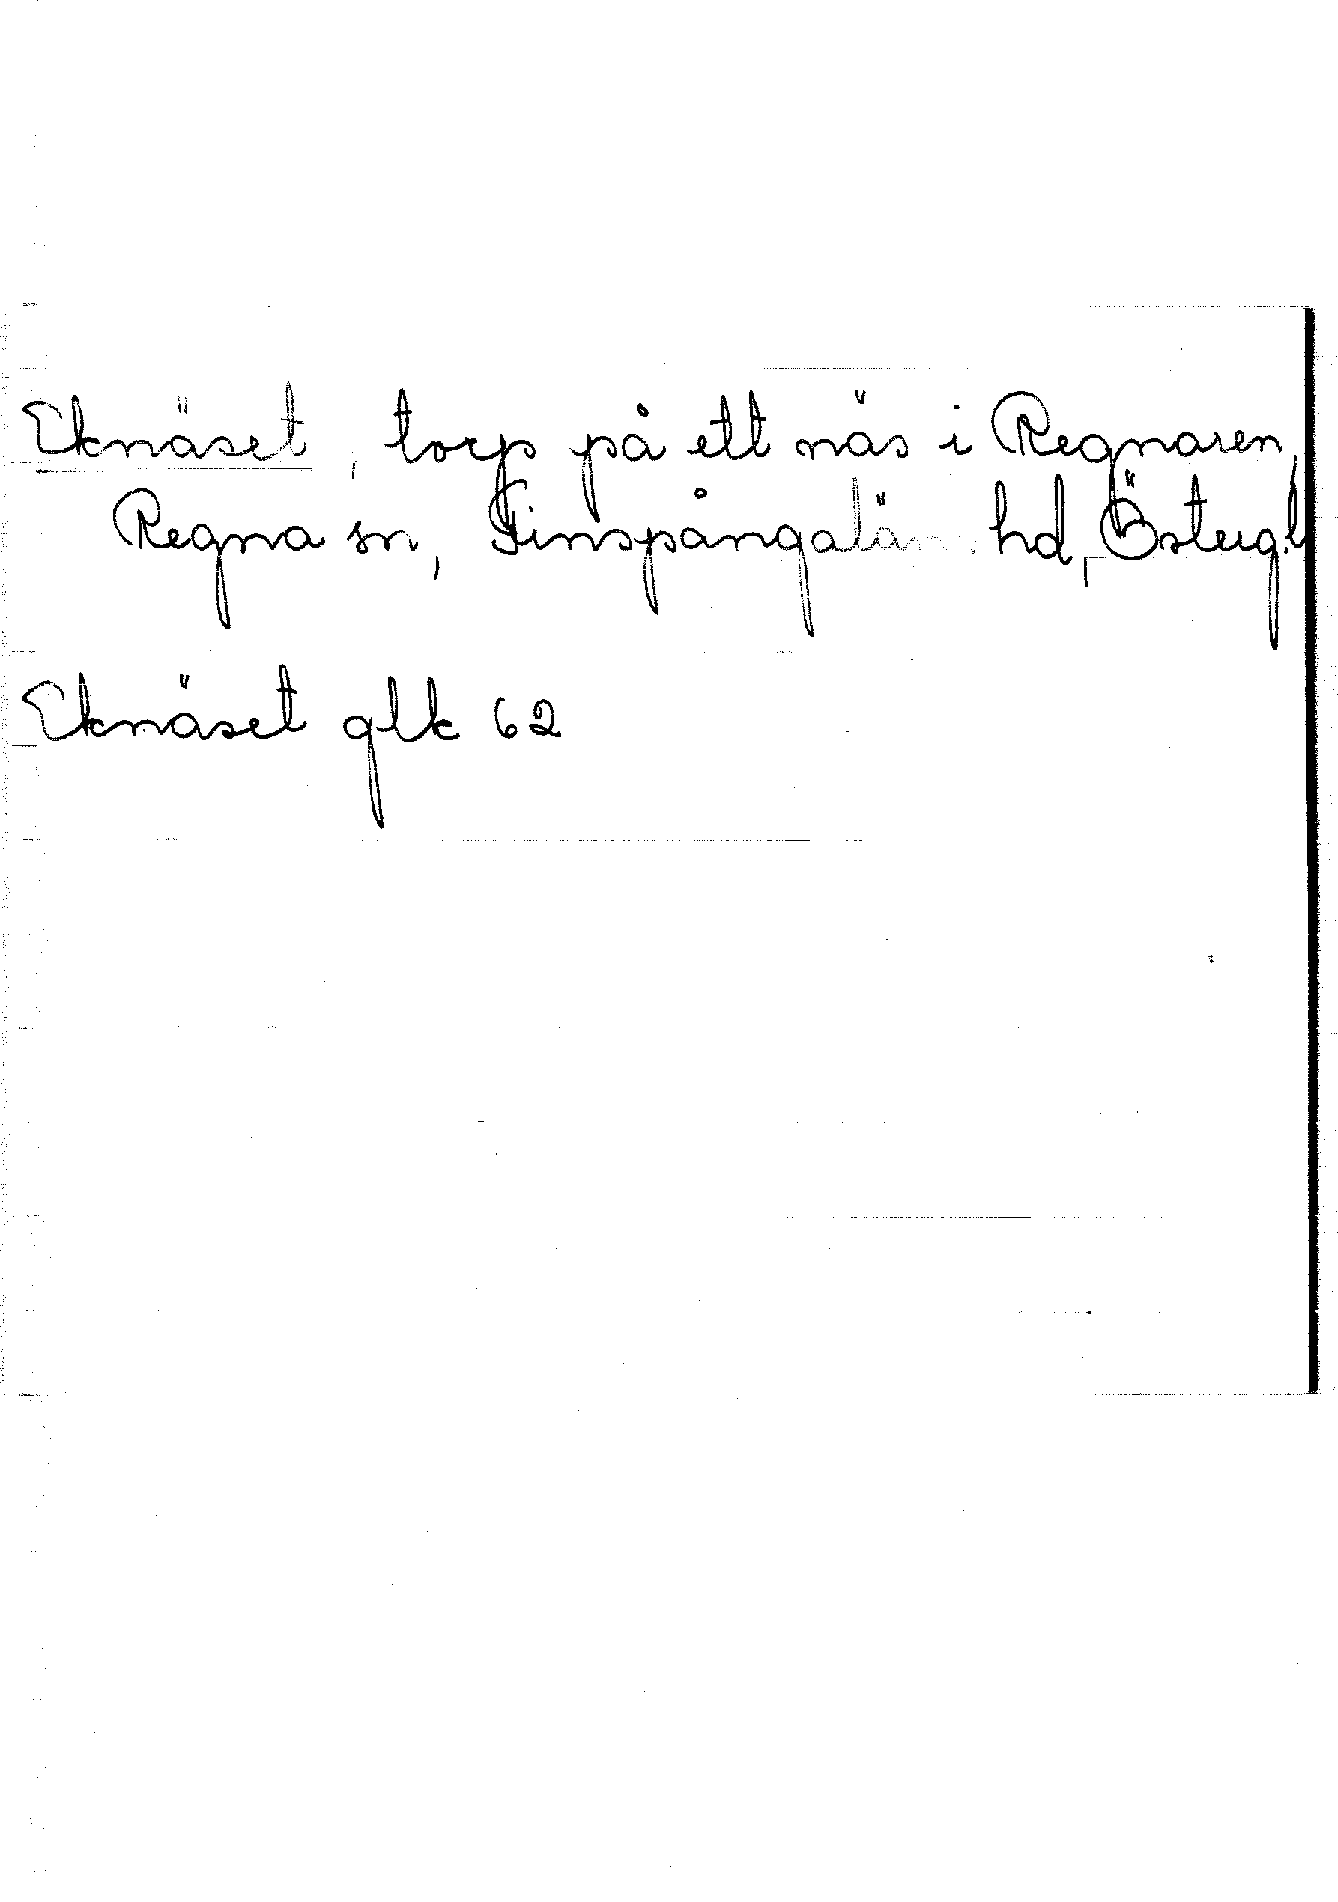 Eknäset, torp på ett näs i Regnaren,
Regna sn, Finspångalän. hd, Östergl
Eknäset glk 62